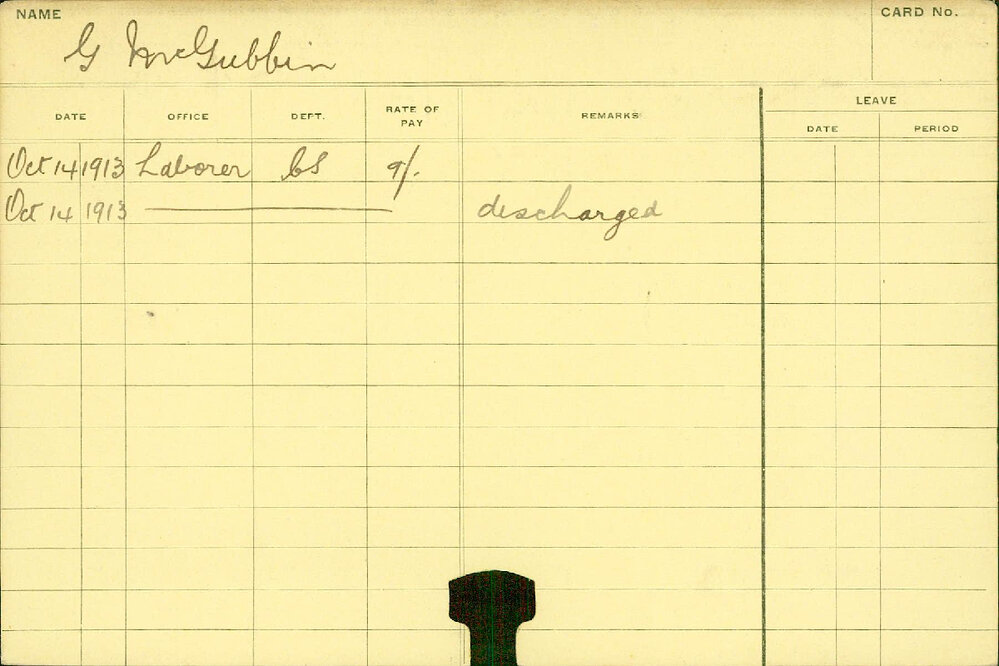 NAME
CARD NO.
G McGubbin
DATE OFFICE DEPT. RATE OF PAY REMARKS LEAVE
DATE PERIOD
Oct 14 1913 Laborer CS 9/-
Oct 14 1913 discharged